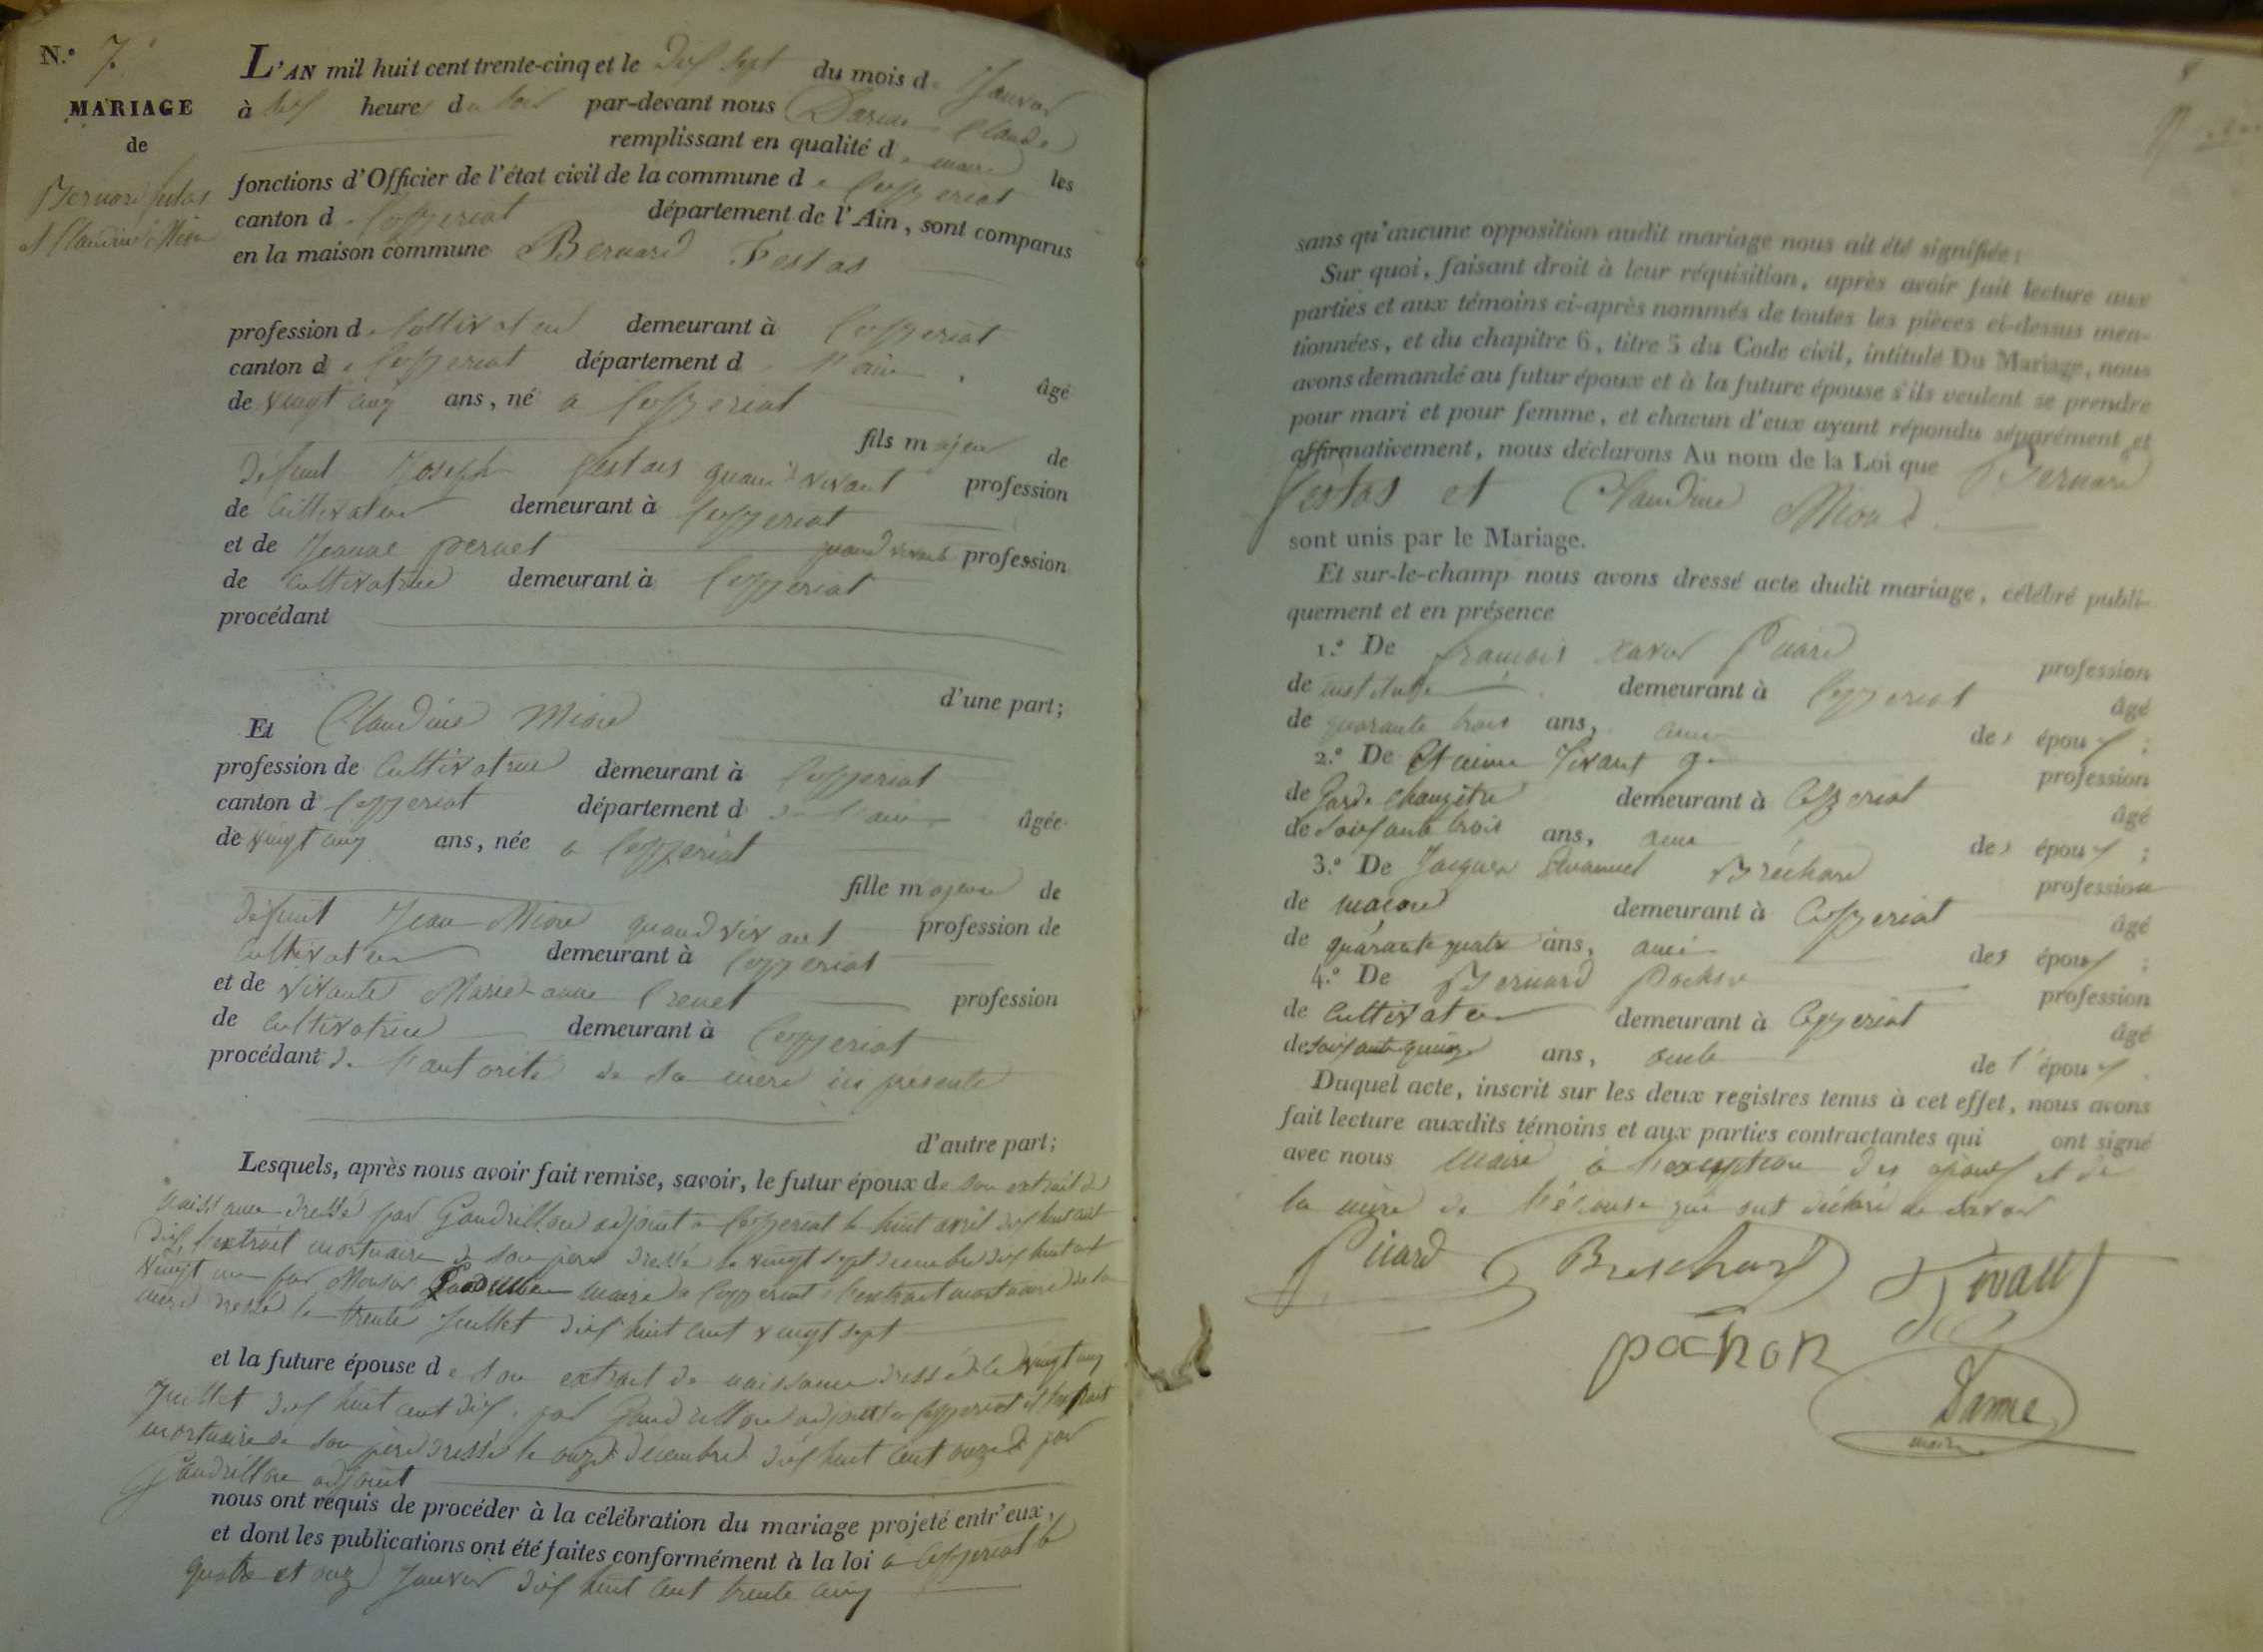 N.° 7.
MARIAGE
de
Bernard festas
et Claudine Mion
L'AN mil huit cent trente-cinq et le dix sept du mois de Janvier
à six heures du soir par-devant nous Darme Claude
remplissant en qualité de maire les
fonctions d'Officier de l'état civil de la commune de Ceyzeriat
canton de Ceyzeriat département de l'Ain, sont comparus
en la maison commune Bernard Festas
profession de Cultivateur demeurant à Ceyzeriat
canton de Ceyzeriat département d l'ain, âgé
de vingt cinq ans, né à Ceyzeriat
fils majeur de
défunt Joseph festas quand vivant profession
de Cultivateur demeurant à Ceyzeriat
et de Jeanne pernet quand vivant profession
de Cultivatrice demeurant à Ceyzeriat
procédant
d'une part;
Et Claudine Mion
profession de Cultivatrice demeurant à Ceyzeriat
canton d Ceyzeriat département d de l'ain âgée
de vingt cinq ans, née a Ceyzeriat
fille majeure de
défunt Jean Mion quand vivant profession de
Cultivateur demeurant à Ceyzeriat
et de vivante Marie-anne profession
de Cultivatrice demeurant à Ceyzeriat
procédant de l'autorité de sa mère ici présente
d'autre part;
Lesquels, après nous avoir fait remise, savoir, le futur époux de son extrait de
naissance dressé par Gaudrillon adjoint a Ceyzeriat le huit avril dix huit cent
dix l'extrait mortuaire de son père dressé le vingt sept decembre dix huit cent
vingt un par Monsieur maire a Ceyzeriat l'extrait mortuaire de sa
mère dressé le trente Juillet dix huit cent vingt sept
et la future épouse de son extrait de naissance dressé le vingt cinq
Juillet dix huit cent dix par Gaudrillon adjoint a Ceyzeriat et l'extrait
mortuaire de son père dressé le onze décembre dix huit cent onze par
Gaudrillon adjoint
nous ont requis de procéder à la célébration du mariage projeté entr'eux,
et dont les publications ont été faites conformément à la loi a Ceyzeriat le
quatre et onze Janvier dix huit cent trente cinq
sans qu'aucune opposition audit mariage nous ait été signifiée;
Sur quoi, faisant droit à leur réquisition, après avoir fait lecture aux
parties et aux témoins ci-après nommés de toutes les pièces ci-dessus men-
tionnées, et du chapitre 6, titre 5 du Code civil, intitulé Du Mariage, nous
avons demandé au futur époux et à la future épouse s'ils veulent se prendre
pour mari et pour femme, et chacun d'eux ayant répondu séparément et
affirmativement, nous déclarons Au nom de la Loi que Bernard
festas et Claudine Mion
sont unis par le Mariage.
Et sur-le-champ nous avons dressé acte dudit mariage, célébré publi-
quement et en présence
1.° De françois xavier Picard profession
de instituteur demeurant à Ceyzeriat âgé
de quarante trois ans, ami des époux;
2.° De Etienne Tivant profession
de Garde champêtre demeurant à Ceyzeriat âgé
de soixante trois ans, ami des époux;
3.° De Jacques Emanuel Bréchard profession
de maçon demeurant à Ceyzeriat âgé
de quarante quatre ans, ami des époux;
4.° De Bernard Pochon profession
de Cultivateur demeurant à Ceyzeriat âgé
de soixante quinze ans, oncle de l'époux.
Duquel acte, inscrit sur les deux registres tenus à cet effet, nous avons
fait lecture auxdits témoins et aux parties contractantes qui ont signé
avec nous Maire à l'exception des époux et de
la mère de l'épouse qui ont déclaré ne savoir
Picard Breschard Tivant
pochon
Darme
maire